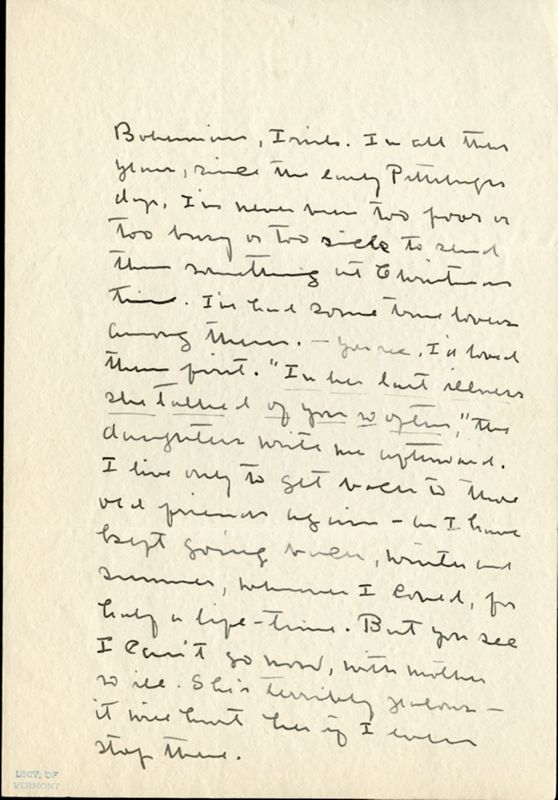 Bohemians, Irish. In all these
years, since the early Pittsburgh
days, I've never been too poor or
too busy or too sick to send
them something at Christmas
time. I've had some true lovers
among them. — you see, I'd loved
them first. "In her last illness
she talked of you so often," the
daughters write me afterward.
I live only to get back to those
old friends again — as I have
kept going back, winter and
summer, whenever I could, for
half a life-time. But you see
I can't go now, with mother
so ill. She's terribly jealous —
it will hurt her if I even
stop there.
UNIV. OF
VERMONT